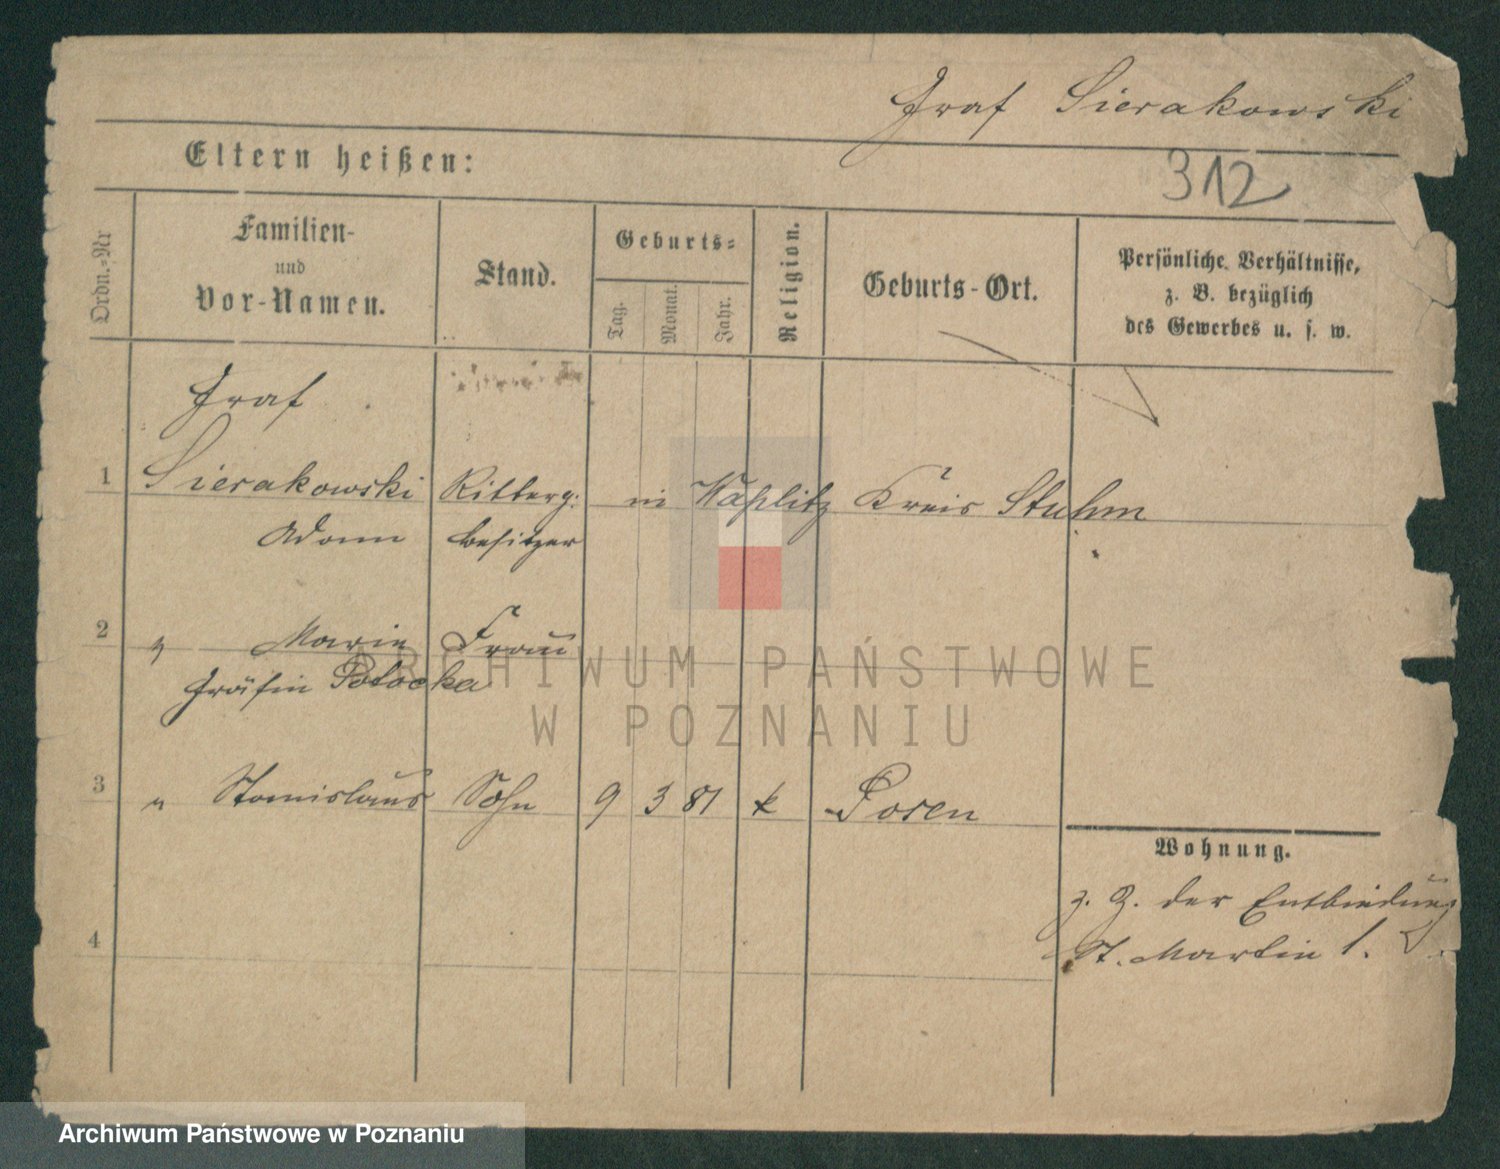 Graf Sierakowski
Eltern heißen:
312
Ordn.=Nr
Familien-
und
Vor-Namen.
Stand.
Geburts=
Tag.
Monat.
Jahr.
Religion.
Geburts-Ort.
Persönliche Verhältnisse,
z. B. bezüglich
des Gewerbes u. s. w.
Graf
1 Sierakowski Ritterg: in Waplitz Kreis Stuhm
Adam besitzer
2 " Marie Frau
Gräfin Potocka
3 " Stanislaus Sohn 9 3 81 k Posen
Wohnung.
z. Z. der Entbindung
4
St. Martin 1.
ARCHIWUM PAŃSTWOWE
W POZNANIU
Archiwum Państwowe w Poznaniu